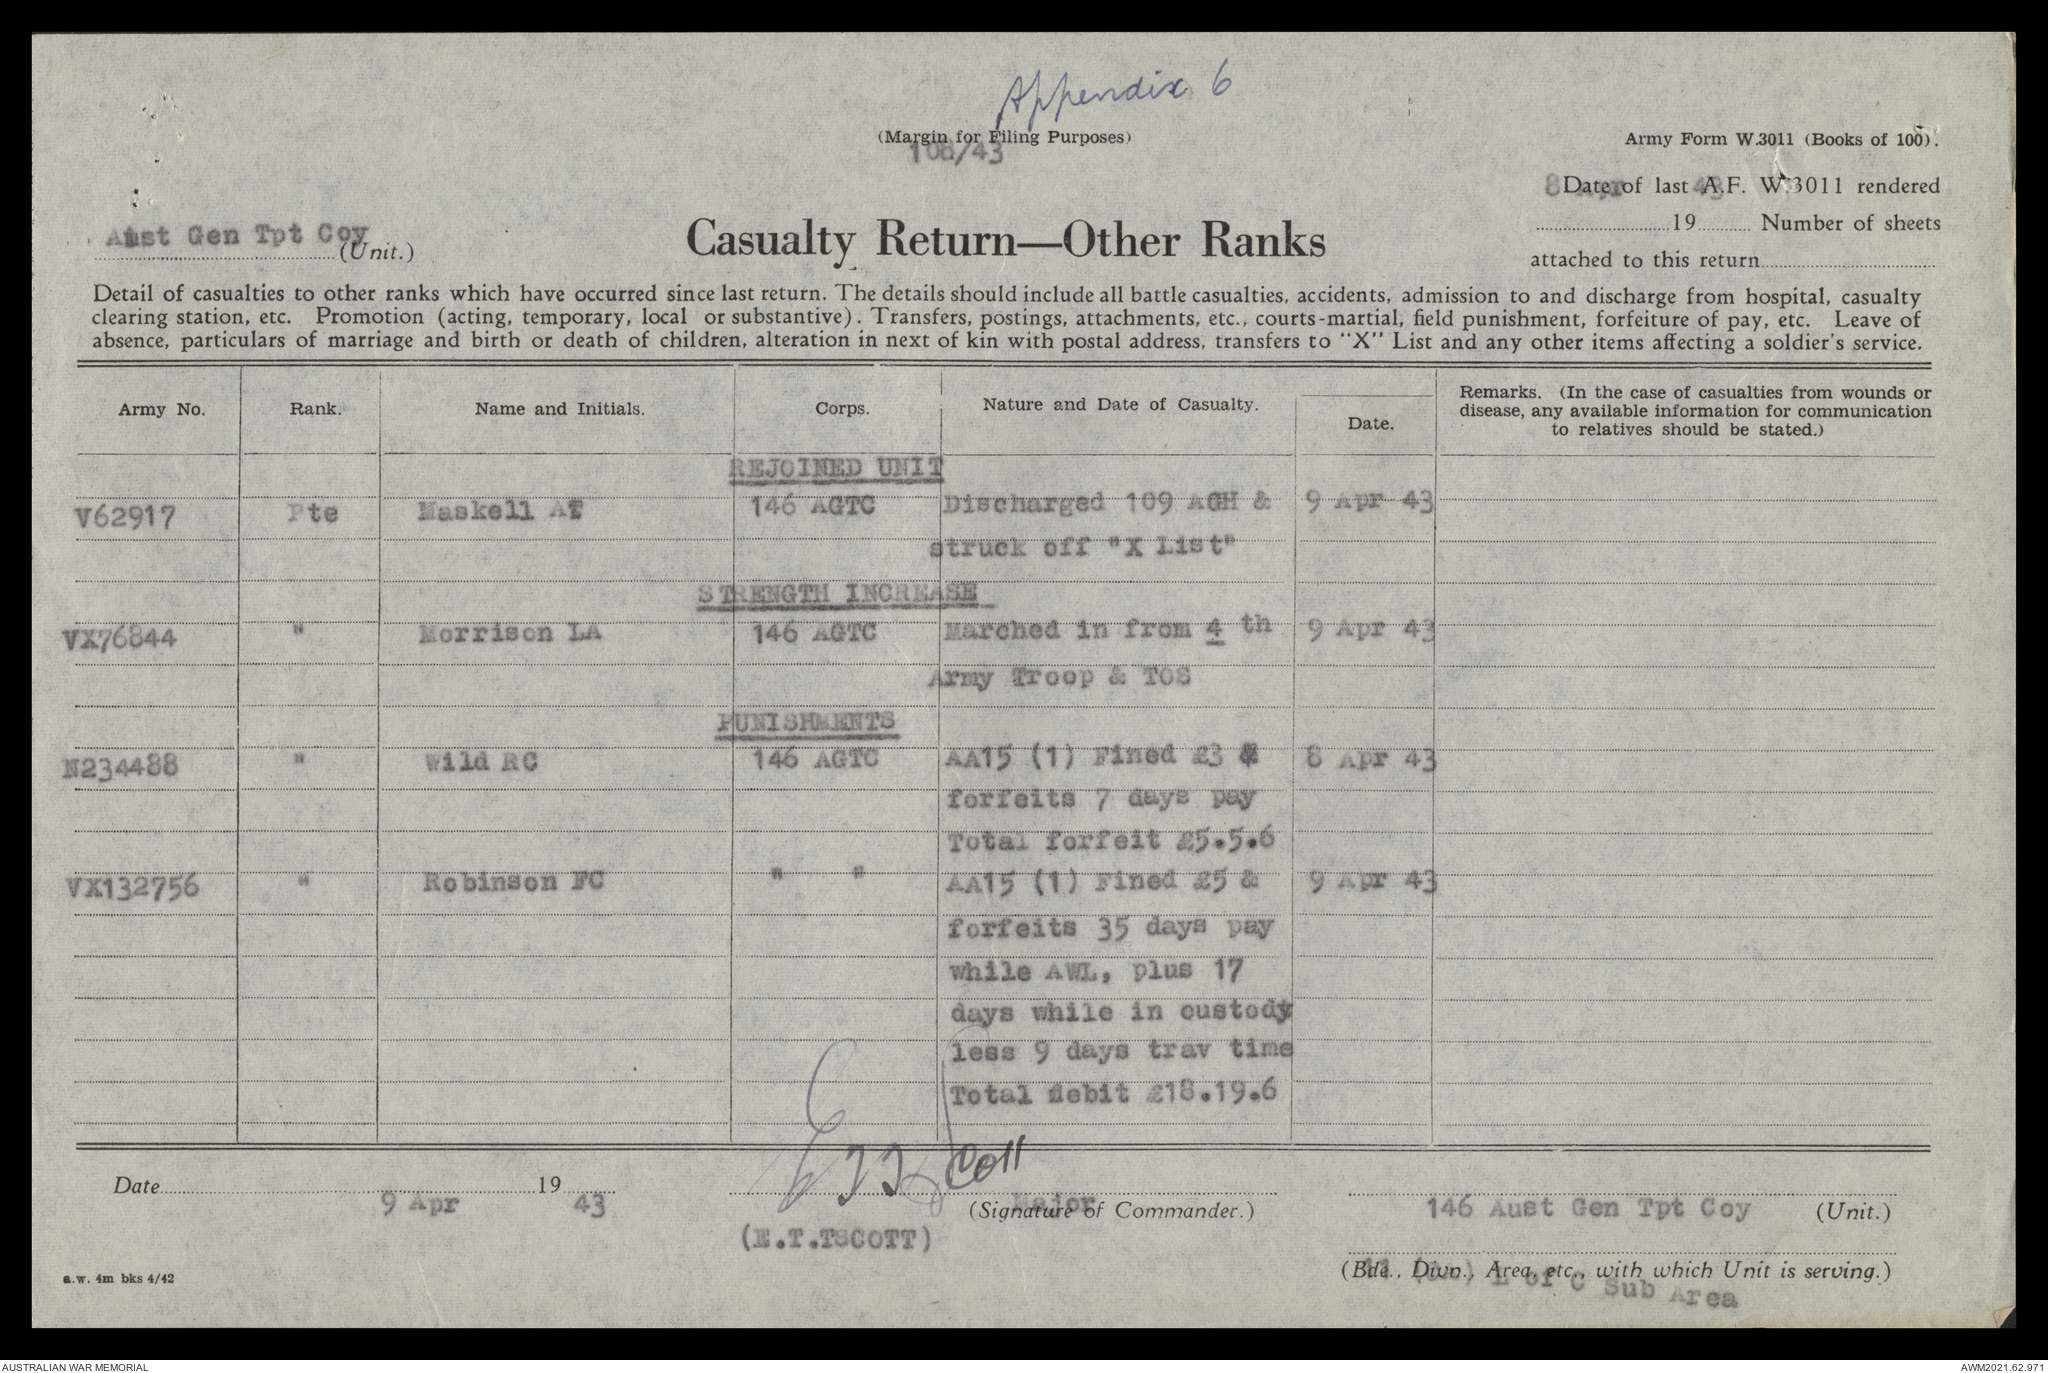 Appendix 6
(Margin for Filing Purposes)
108/43
Army Form W.3011 (Books of 100).
8 Apr 43
Date of last A.F. W.3011 rendered
19 Number of sheets
attached to this return
Aust Gen Tpt Coy
(Unit.)
Casualty Return—Other Ranks
Detail of casualties to other ranks which have occurred since last return. The details should include all battle casualties, accidents, admission to and discharge from hospital, casualty
clearing station, etc. Promotion (acting, temporary, local or substantive). Transfers, postings, attachments, etc., courts-martial, field punishment, forfeiture of pay, etc. Leave of
absence, particulars of marriage and birth or death of children, alteration in next of kin with postal address, transfers to "X" List and any other items affecting a soldier's service.
Army No. Rank. Name and Initials. Corps. Nature and Date of Casualty. Date. Remarks. (In the case of casualties from wounds or
disease, any available information for communication
to relatives should be stated.)
REJOINED UNIT
V62917 Pte Maskell AT 146 AGTC Discharged 109 AGH & 9 Apr 43
struck off "X List"
STRENGTH INCREASE
VX76844 " Morrison LA 146 AGTC Marched in from 4 th 9 Apr 43
Army Troop & TOS
PUNISHMENTS
N234488 " Wild RC 146 AGTC AA15 (1) Fined £3 & 8 Apr 43
forfeits 7 days pay
Total forfeit £5.5.6
VX132756 " Robinson FC " " AA15 (1) Fined £5 & 9 Apr 43
forfeits 35 days pay
while AWL, plus 17
days while in custody
less 9 days trav time
Total debit £18.19.6
Date 9 Apr 19 43
Scott
Major
(Signature of Commander.)
(E.T.TSCOTT)
146 Aust Gen Tpt Coy (Unit.)
(Bde., Divn., Area, etc., with which Unit is serving.)
L of C Sub Area
a.w. 4m bks 4/42
AUSTRALIAN WAR MEMORIAL
AWM2021.62.971